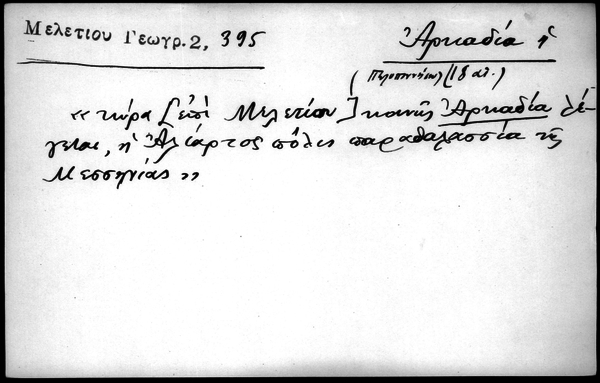 Μελετίου Γεωγρ. 2, 395
Ἀρκαδία ἡ
(Πελοπονήσου) (18 αἰ.)
«τώρα [ἐπὶ Μελετίου] κοινῶς Ἀρκαδία λέ-
γεται, ἡ Ἁλίαρτος πόλις παραθαλασσία τῆς
Μεσσηνίας»